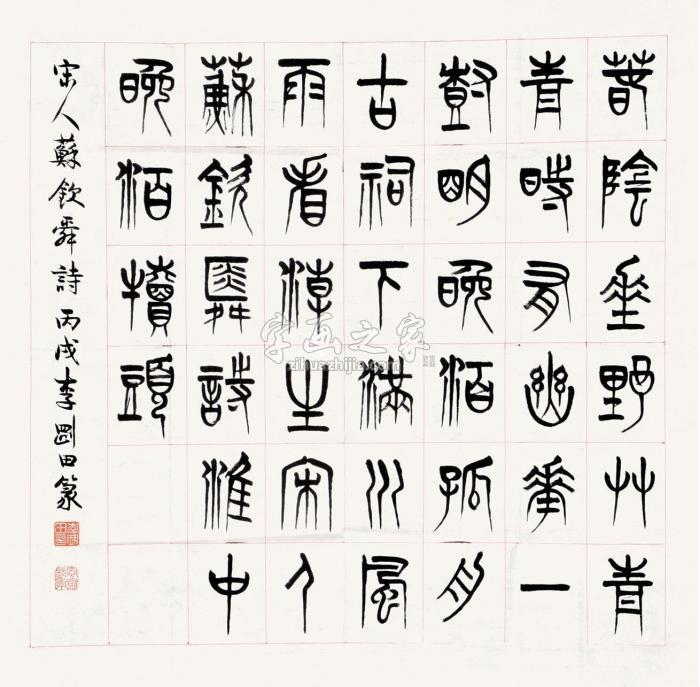 春陰垂野草青
青時有幽花一
樹明晚泊孤舟
古祠下滿川風
雨看潮生宋人
蘇欽舜詩淮中
晚泊犢頭
宋人蘇欽舜詩丙戌李剛田篆
字画之家
zihuazhijia.com